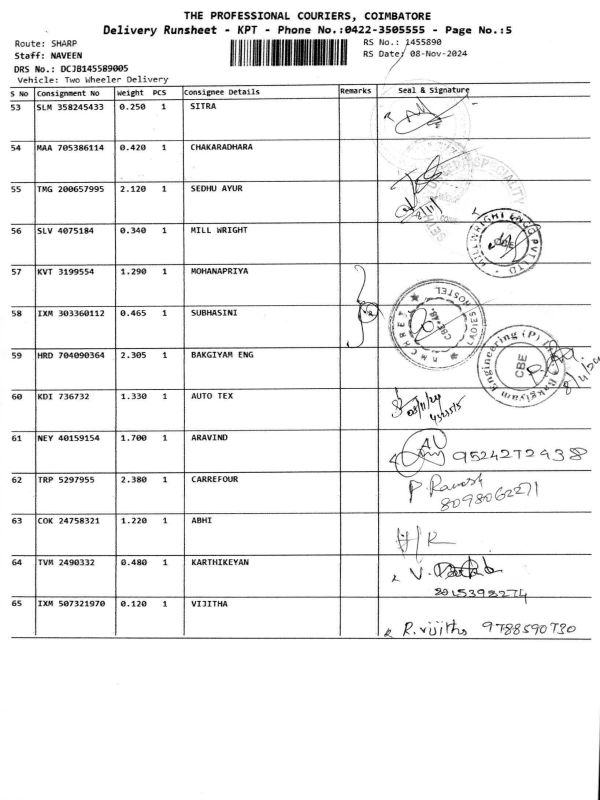 THE PROFESSIONAL COURIERS, COIMBATORE
Delivery Runsheet - KPT - Phone No.:0422-3505555 - Page No.:5
Route: SHARP
RS No.: 1455890
Staff: NAVEEN
RS Date: 08-Nov-2024
DRS No.: DCJB145589005
Vehicle: Two Wheeler Delivery
S No Consignment No Weight PCS Consignee Details Remarks Seal & Signature
53 SLM 358245433 0.250 1 SITRA
54 MAA 705386114 0.420 1 CHAKARADHARA
55 TMG 200657995 2.120 1 SEDHU AYUR
56 SLV 4075184 0.340 1 MILL WRIGHT
MILLWRIGHT ENGG PVT LTD
57 KVT 3199554 1.290 1 MOHANAPRIYA
58 IXM 303360112 0.465 1 SUBHASINI
LADIES HOSTEL
59 HRD 704090364 2.305 1 BAKGIYAM ENG
Bakgiyam Engineering (P)
CBE
60 KDI 736732 1.330 1 AUTO TEX
08/11/24
61 NEY 40159154 1.700 1 ARAVIND
9524272438
62 TRP 5297955 2.380 1 CARREFOUR
P. Ramesh
8098062271
63 COK 24758321 1.220 1 ABHI
H/R
64 TVM 2490332 0.480 1 KARTHIKEYAN
65 IXM 507321970 0.120 1 VIJITHA
R. Vijitha 9788590730